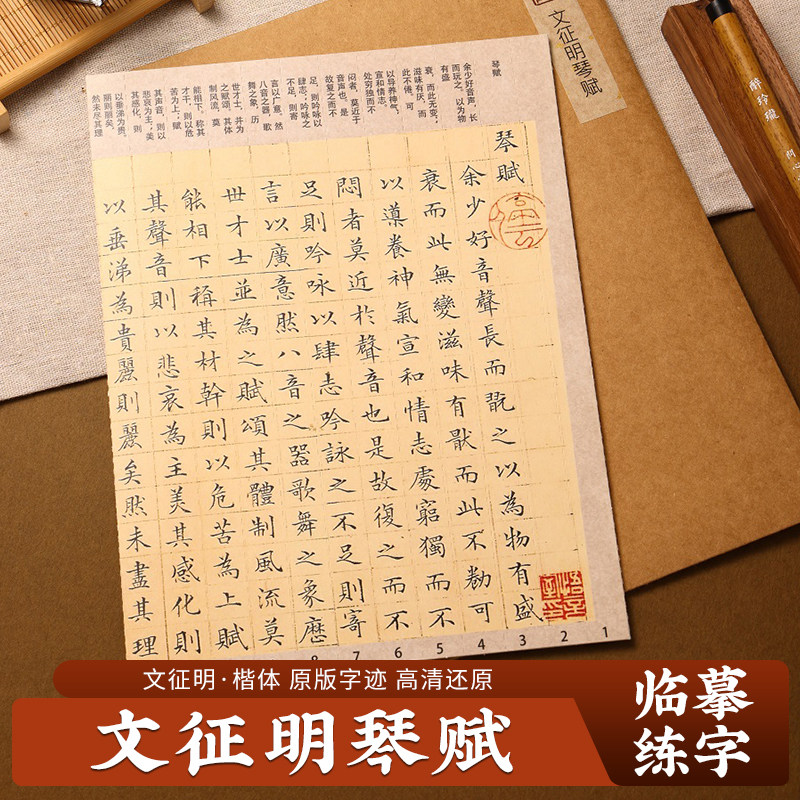 文征明琴赋
醉玲瓏
琴赋
余少好音声，长
而玩之。以为物
有盛
衰，而此无变；
滋味有厌，而
此不倦。可
以导养神气，
宣和情志。
处穷独而不
闷者，莫近于
音声也。是
故复之而不
足，则吟咏以
肆志；吟咏之
不足，则寄
言以广意。然
八音之器，歌
舞之象，历
世才士，并为
之赋颂。其体
制风流，莫
能相下，称其
才干，则以危
苦为上；赋
其声音，则以
悲哀为主；美
其感化，则
以垂涕为贵。
丽则丽矣，
然未尽其理
琴賦
余少好音聲長而翫之以為物有盛
衰而此無變滋味有猒而此不勌可
以導養神氣宣和情志處窮獨而不
悶者莫近於聲音也是故復之而不
足則吟咏以肆志吟詠之不足則寄
言以廣意然八音之器歌舞之象歷
世才士並為之賦頌其體制風流莫
能相下稱其材幹則以危苦為上賦
其聲音則以悲哀為主美其感化則
以垂涕為貴麗則麗矣然未盡其理
8 7 6 5 4 3 2 1
文征明·楷体 原版字迹 高清还原
文征明琴赋
临摹
练字